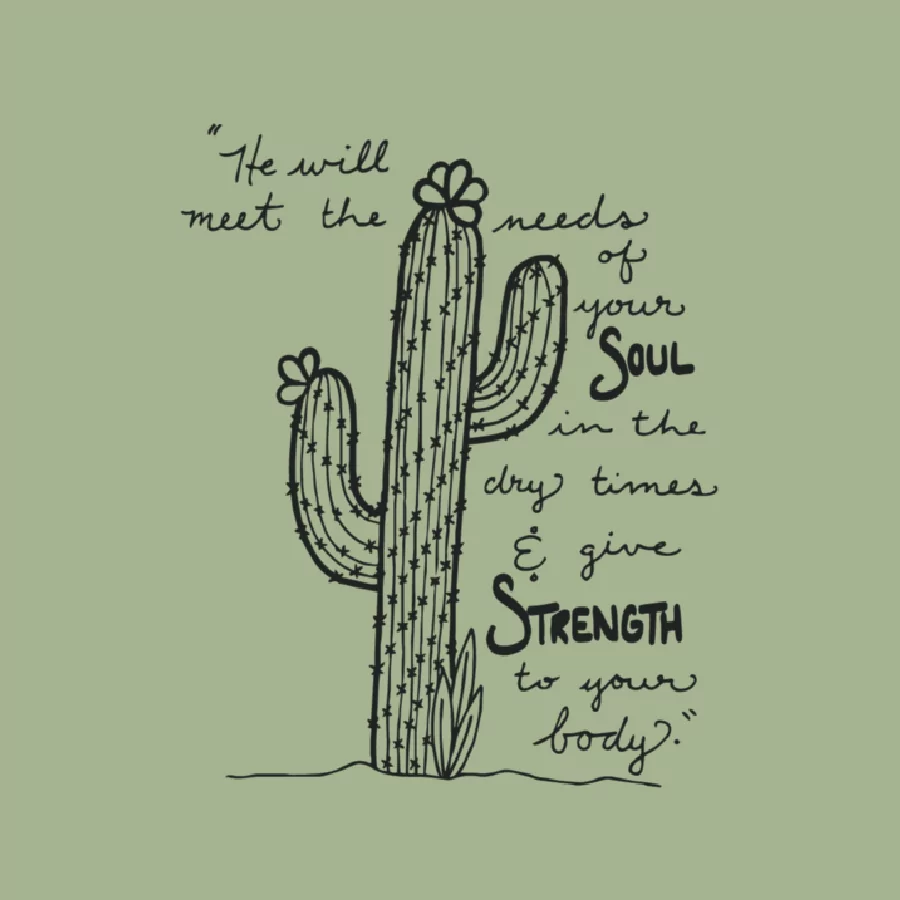 "He will
meet the needs
of
your
SOUL
in the
dry times
& give
STRENGTH
to your
body."